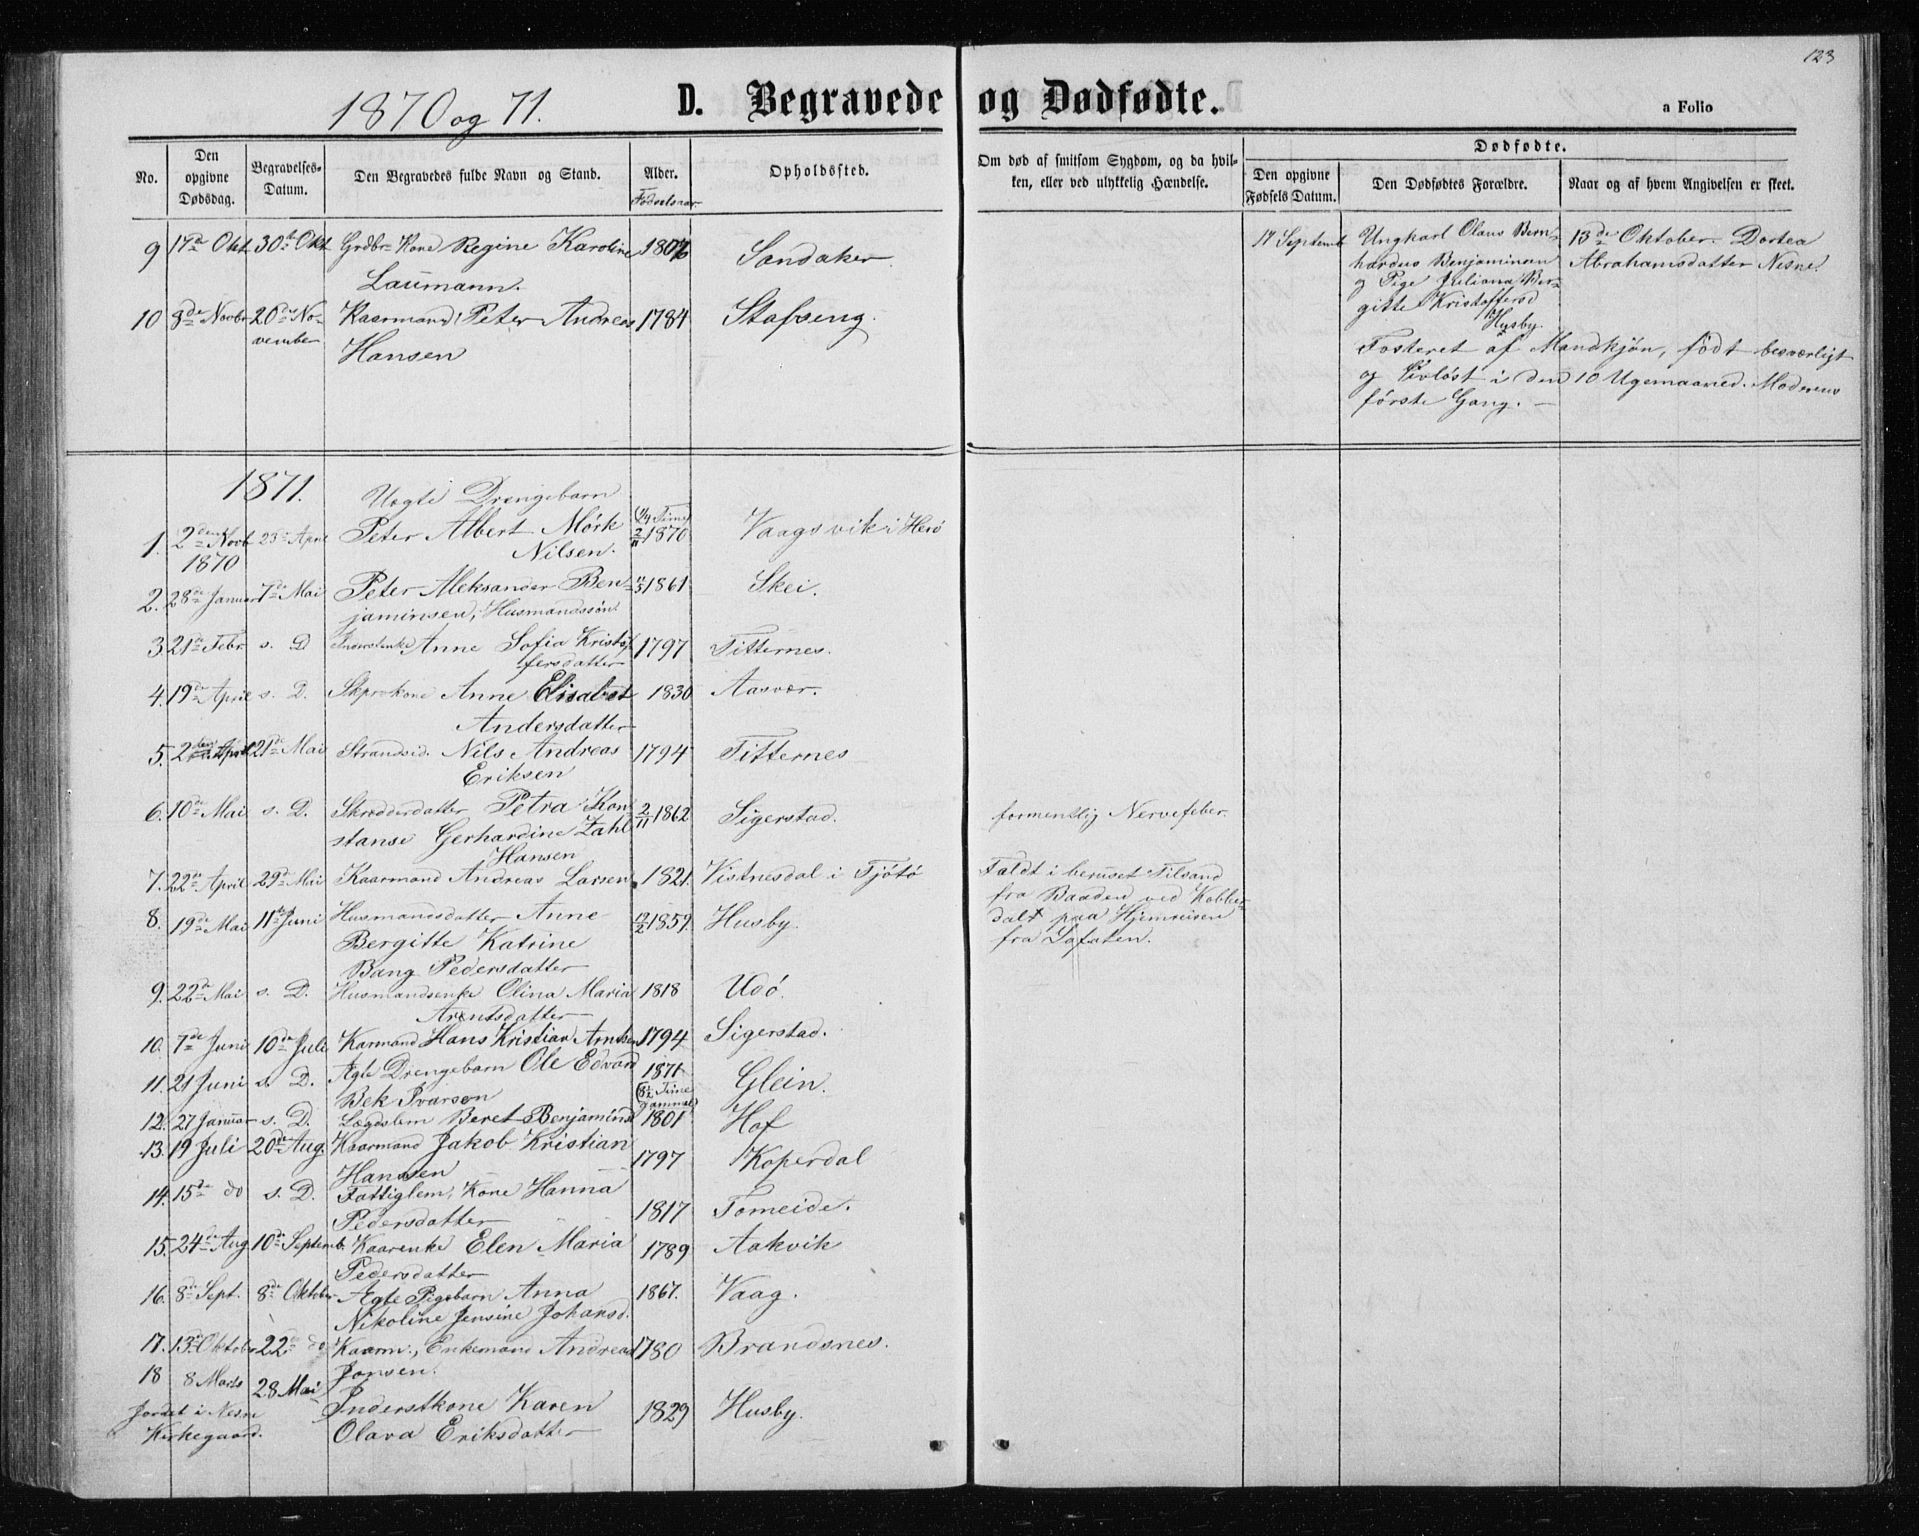 123
1870 og 71.
D. Begravede og Dødfødte.
a Folio
No.
Den opgivne Dødsdag.
Begravelses-Datum.
Den Begravedes fulde Navn og Stand.
Alder.
Fødselsaar
Opholdssted.
Om død af smitsom Sygdom, og da hvil-
ken, eller ved ulykkelig Hændelse.
Dødfødte.
Den opgivne Fødsels Datum.
Den Dødfødtes Forældre.
Naar og af hvem Angivelsen er skeet.
9 17de Okt 30te Okt Grdbr. Kone Regine Karoline Sandaker.
Laumann.
17 Septemb Ungkarl Olaus Bern- 13de Oktober. Dortea
hardus Benjaminsen Abrahamsdatter Nesne.
og Pige Juliana Ber-
gitte Kristoffersd
Husby.
10 8de Novbr 20de No- Kaarmand, Peter Andreas 1784 Stafseng.
vember Hansen
Fosteret af Mandkjøn, født besværligt
og livløst i den 10 Ugemaaned. Moderens
første Gang. —
1871.
Uægte Drengebarn
1. 2den Novb 23de April Peter Albert Mørk 2/11 1870 Vaagsvik i Herø
1870 Nilsen.
2. 28de Januar 7de Mai Peter Aleksander Ben- 1861 Skei.
jaminsen, Husmandssøn.
3 21de Febr s. D Inderstenke Anne Sofia Kristof- 1797 Titternes.
fersdatter
4. 19de April s. D. Anne Elisabet 1830 Aasvær.
Andersdatter
5. April 21de Mai Strandsid. Nils Andreas 1794 Titternes
Eriksen
6. 10de Mai s. D. Skrædderdatter Petra Kon- 2/11 1862 Sigerstad. formentlig Nervefeber.
stanse Gerhardine Zahl
Hansen
7. 22de April 29de Mai Kaarmand Andreas Larsen 1821. Vistnesdal i Tjøtø
Faldt i beruset Tilstand
fra Baaden ved Kobber-
dal paa Hjemreisen
fra Lofoten.
8. 19de Mai 11te Juni Husmandsdatter Anne 12/2 1859. Husby.
Bergitte Katrine
Bang Pedersdatter
9. 22de Mai s. D. Husmandsenke Olina Maria 1818 Udø.
Arntsdatter
10. 7de Juni 10de Juli Karmand Hans Kristian Arntsen 1794 Sigerstad.
11. 21 Juni s. D. Ægte Drengebarn Ole Edvard 1871 Glein.
Bek Ivarsen (8½ Time gammel)
12. 27 Januar s. D. Lægdslem Beret Benjaminsd 1801 Hof
13. 19 Juli 20de Aug. Kaarmand Jakob Kristian 1797 Koperdal
Hansen
14. 15de do s. D. Fattiglem, Kone Hanna 1817 Tomeide.
Pedersdatter
15. 24de Aug. 10de Septemb. Kaarenke Elen Maria 1789 Aakvik
Pedersdatter
16. 8de Sept. 8de Oktober Ægte Pigebarn Anna 1867. Vaag.
Nikoline Jensine Johansd.
17. 13de Oktobr 22de do Kaarm., Enkemand Andreas 1780 Brandsnes.
Jonsen.
18 8 Marts 28 Mai Inderstkone Karen 1829 Husby.
Jordet i Nesne
Kirkegaard. Olava Eriksdatter